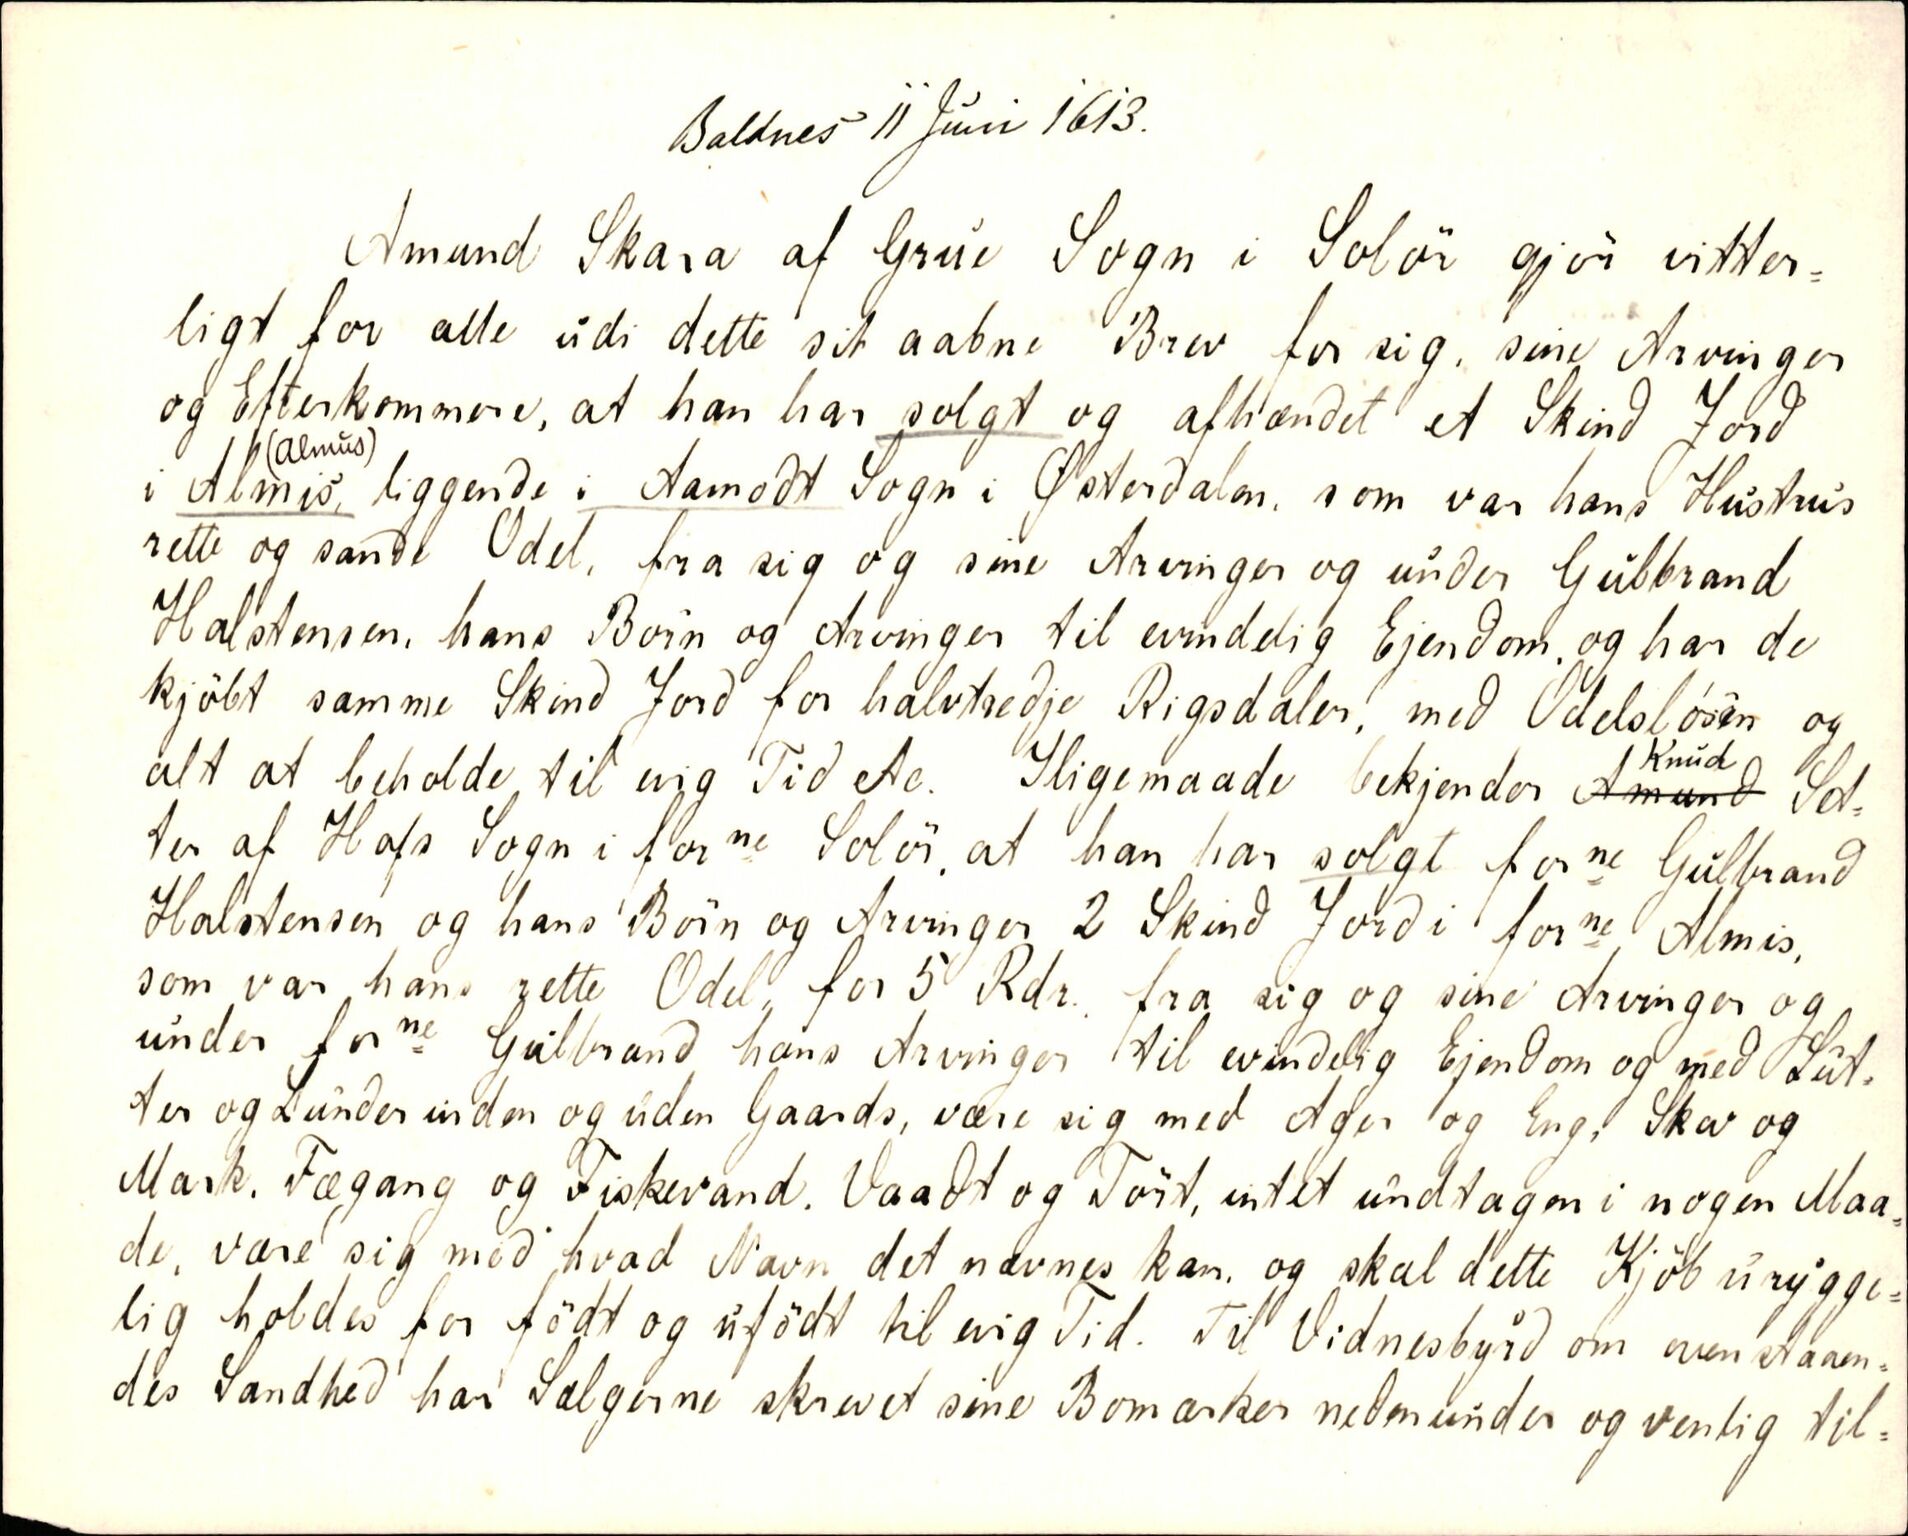 Baldnes 11 Juni 1613.
Amund Skara af Grue Sogn i Solör gjör vitter=
ligt for alle udi dette sit aabne Brev for sig, sine Arvinger
og Efterkommere, at han har solgt og afhændet et Skind Jord
(Almus)
i Almis, liggende i Aamodt Sogn i Østerdalen, som var hans Hustrus
rette og sande Odel, fra sig og sine Arvinger og under Gulbrand
Halstensen, hans Börn og Arvinger til evindelig Ejendom, og har de
kjöbt samme Skind Jord for halvtredje Rigsdaler, med Odelslösen og
Knud
alt at beholde til evig Tid etc. Iligemaade bekjender Amund Set=
ter af Hofs Sogn i forne Solör, at han har solgt forne Gulbrand
Halstensen og hans Börn og Arvinger 2 Skind Jord i forne Almis,
som var hans rette Odel, for 5 Rdr. fra sig og sine Arvinger og
under forne Gulbrand hans Arvinger til evindelig Ejendom og med Lut=
ter og Lunder inden og uden Gaards, være sig med Ager og Eng, Skov og
Mark, Fægang og Fiskevand, Vaadt og Tört, intet undtagen i nogen Maa=
de, være sig med hvad Navn det nævnes kan, og skal dette Kjöb urygge=
lig holdes for födt og ufödt til evig Tid. Til Vidnesbyrd om ovenstaaen=
des Sandhed har Sælgerne skrevet sine Bomærker nedenunder og venlig til=